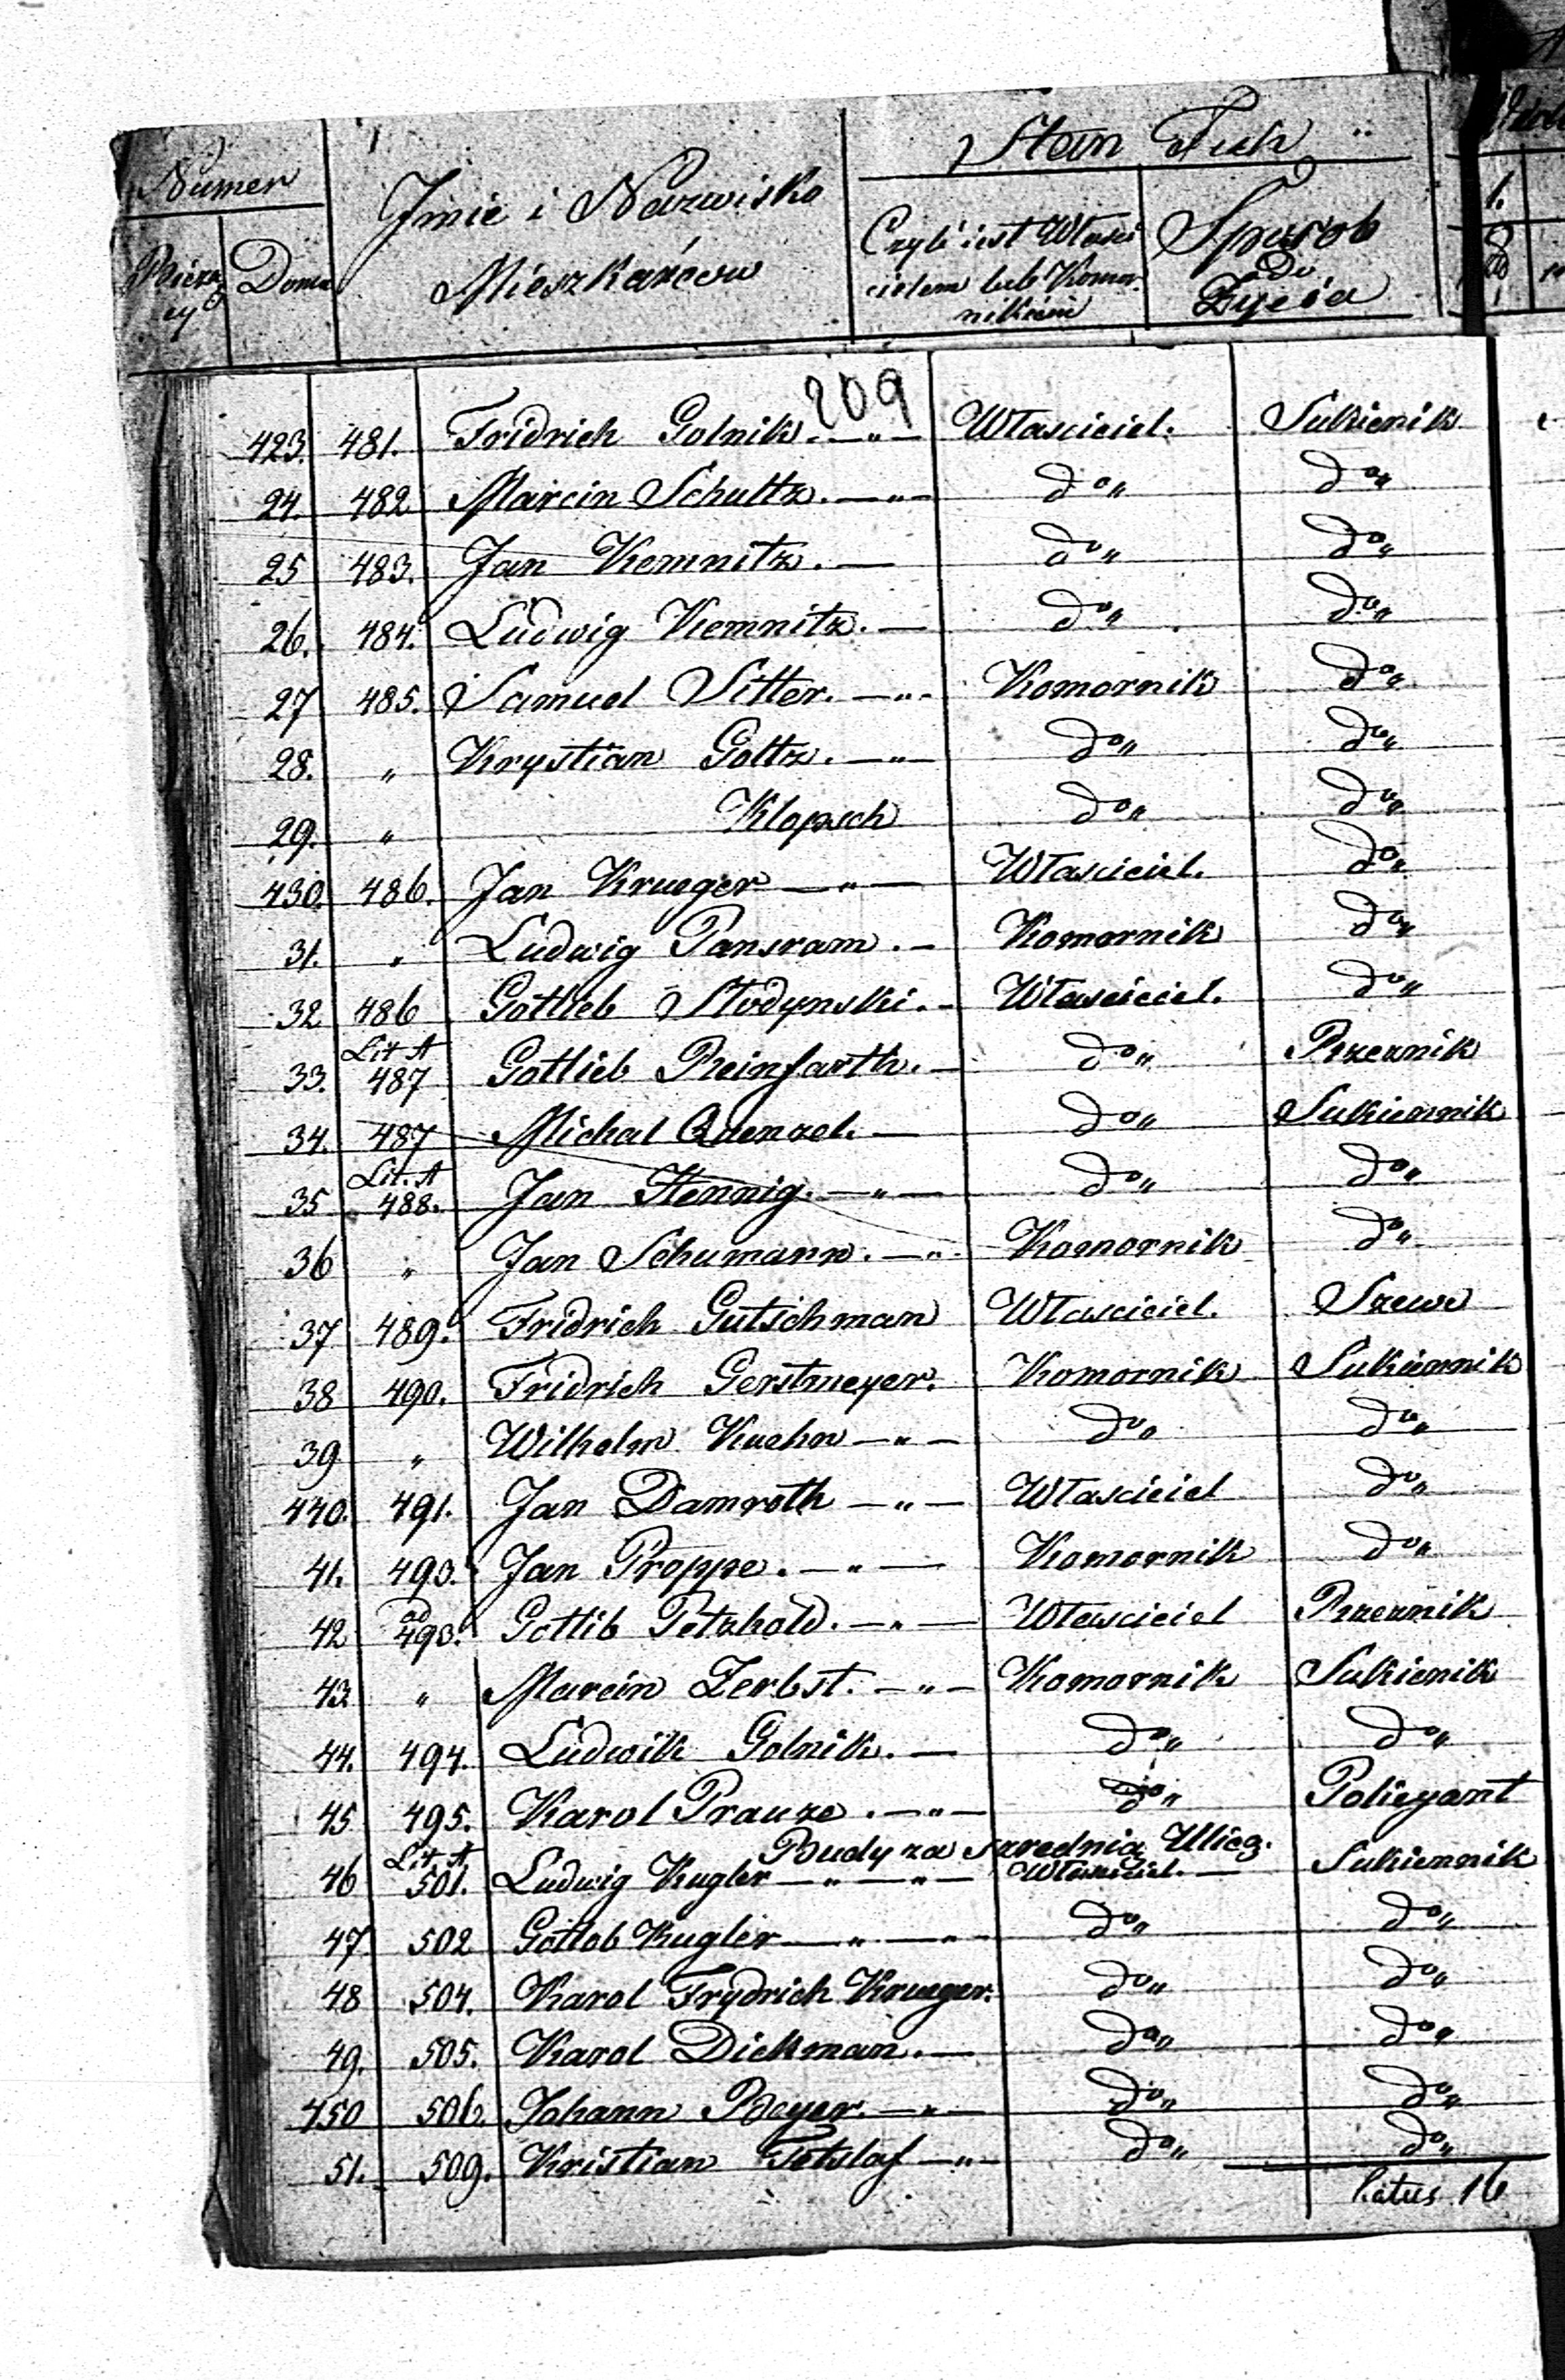 Numer
Jmie i Nazwisko
Mieszkańcow
Stan Tuh
Bieżą
cy
Domu
Czyli iest Właści
cielem lub Komor
nikiem
Sposob
do
Życia
209
423. 481. Fridrich Golnik. —„— Własciciel. Sukienik
24. 482 Marcin Schultz. —„— do„ do„
25 483. Jan Kemnitz. — do„ do„
26. 484. Ludwig Kemnitz. — do„ do„
27 485. Samuel Sitter. —„— Komornik do„
28. „ Krystian Goltz. —„— do„ do„
29. „ Klopsch do„ do„
430. 486. Jan Krueger —„— Własciciel. do„
31. „ Ludwig Pansram. — Komornik do„
32 486 Gottleb Stodynski. — Własciciel. do„
Lit A
33. 487 Gottlieb Reinfarth. — do„ Rzeznik
34. 487 Michal Quenzel. — do„ Sukiennik
Lit. A
35 488. Jan Hennig. —„— do„ do„
36 „ Jan Schumann. —„— Komornik do„
37 489. Fridrich Gutschman Własciciel. Szewc
38 490. Fridrich Gerstmeyer. Komornik Sukiennik
39 „ Wilhelm Kuehn —„— do„ do„
440. 491. Jan Damroth —„— Własciciel do„
41. 493. Jan Proppe. —„— Komornik do„
ad
42 493. Gottlib Petzhold. —„— Własciciel Rzeznik
43. „ Marcin Zerbst. —„— Komornik Sukienik
44. 494. Ludwik Golnik. — do„ do„
45 495. Karol Prauze. —„— do„ Policyant
Budy za szrednią Ulicą.
Lit. A
46 501. Ludwig Kugler —„—„— Własciciel. — Sukiennik
47 502 Gottlob Kugler —„— do„ do„
48 504. Karol Frydrich Krueger. do„ do„
49. 505. Karol Dickman. — do„ do„
450 506. Johann Beyer. —„— do„ do„
51. 509. Kristian Tetslaf —„— do„ do„
latus 16